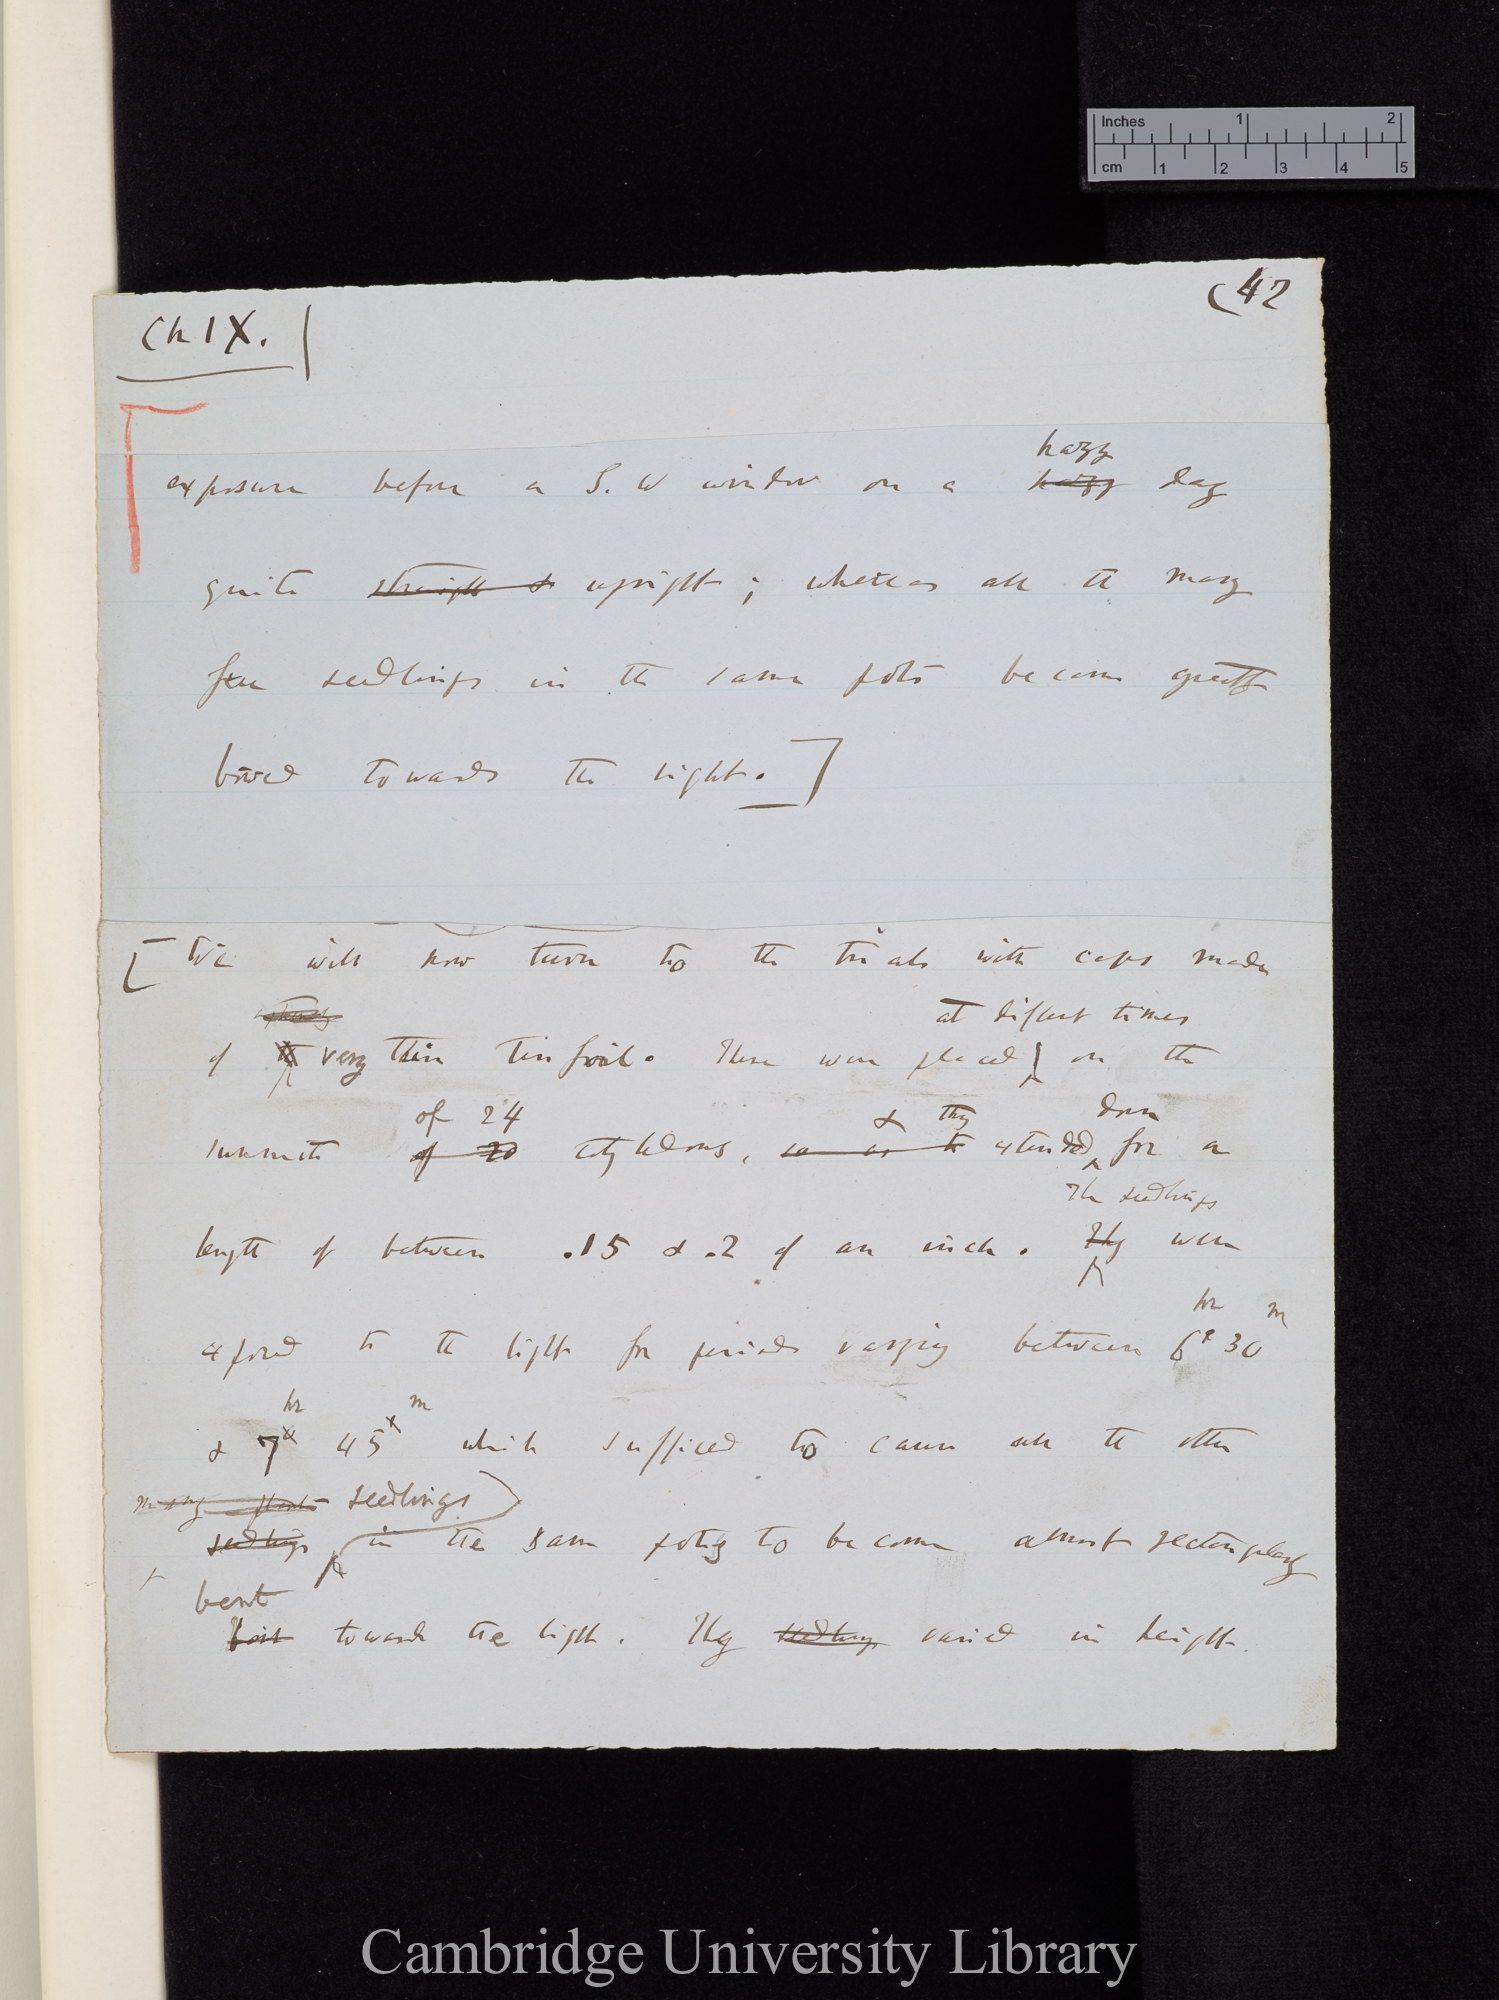 Inches 1 2
cm 1 2 3 4 5
(42
Ch IX.
hazy
exposure before a S. W window on a hazy day
quite straight & upright; whereas all the many
free seedlings in the same pots became greatly
bowed towards the light.]
[We will now turn to the trials with caps made
at different times
of very thin tin foil. These were placed on the
of 24 & they down
summits of 20 cotyledons, so as to extended for a
The seedlings
length of between .15 & .2 of an inch. They were
hr m
exposed to the light for periods varying between 6 30
hr m
& 7 45 which sufficed to cause all the other
many plants seedlings
seedlings in the same pots to become almost rectangularly
bent
bent towards the light. They seedlings varied in height.
Cambridge University Library